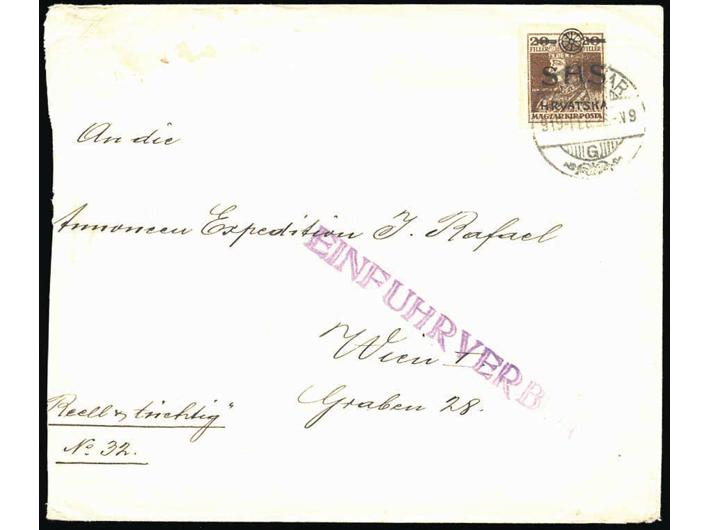 20 20
FILLER FILLER
SHS
HRVATSKA
MAGYAR KIR. POSTA
G
An die
Annoncen Expedition J. Rafael
EINFUHRVERB
Wien I.
Graben 28.
"Reell & tüchtig"
No 32.